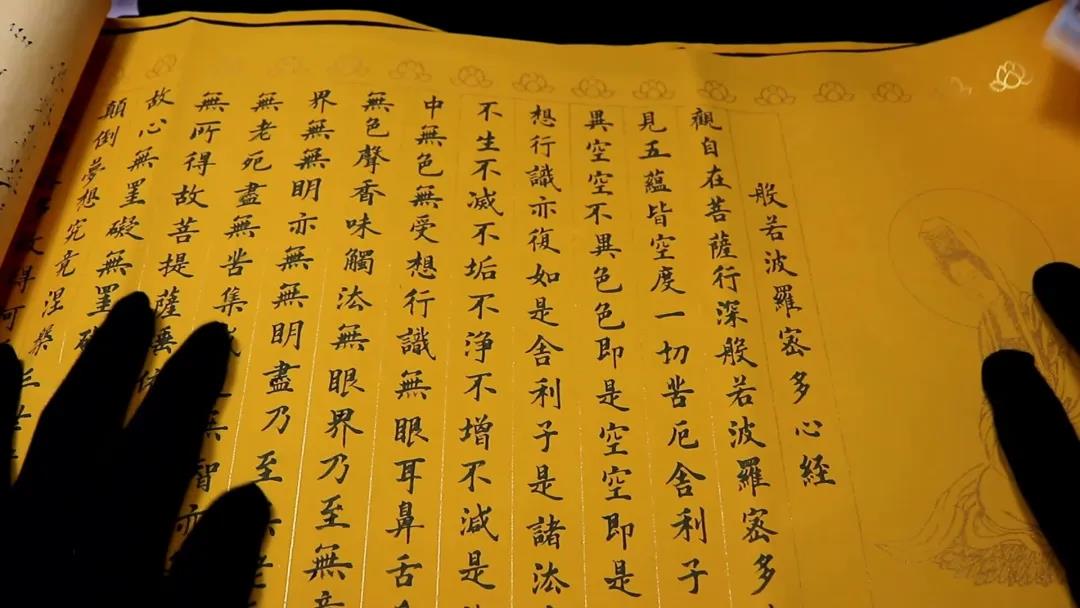 般若波羅密多心經
觀自在菩薩行深般若波羅密多
見五蘊皆空度一切苦厄舍利子
異空空不異色色即是空空即是
想行識亦復如是舍利子是諸法
不生不滅不垢不淨不增不減是
中無色無受想行識無眼耳鼻舌
無色聲香味觸法無眼界乃至無
界無無明亦無無明盡乃至無老
無老死盡無苦集滅無智亦
無所得故菩提薩埵依
故心無罣礙無罣礙
顛倒夢想究竟涅槃
故得可
三世